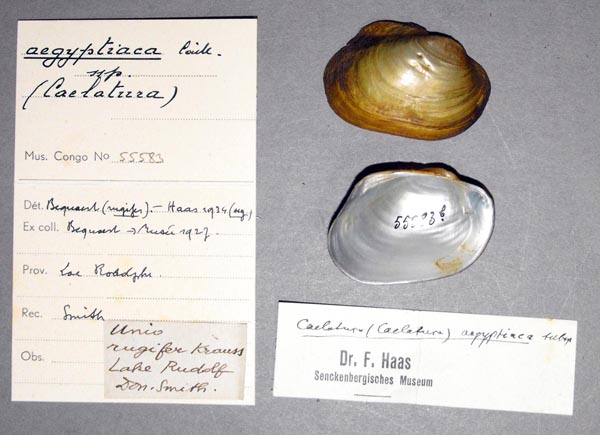 aegyptiaca Caill.
sp.
(Caelatura)
Mus. Congo No 55583
Dét. Bequaert (rugifer). - Haas 1934 (aeg.)
Ex coll. Bequaert → Musée 1927.
Prov. Lac Rodolphe.
Rec. Smith
Obs.
Unio
rugifer Krauss
Lake Rudolf
Don. Smith.
55583b
Caelatura (Caelatura) aegyptiaca subsp
Dr. F. Haas
Senckenbergisches Museum